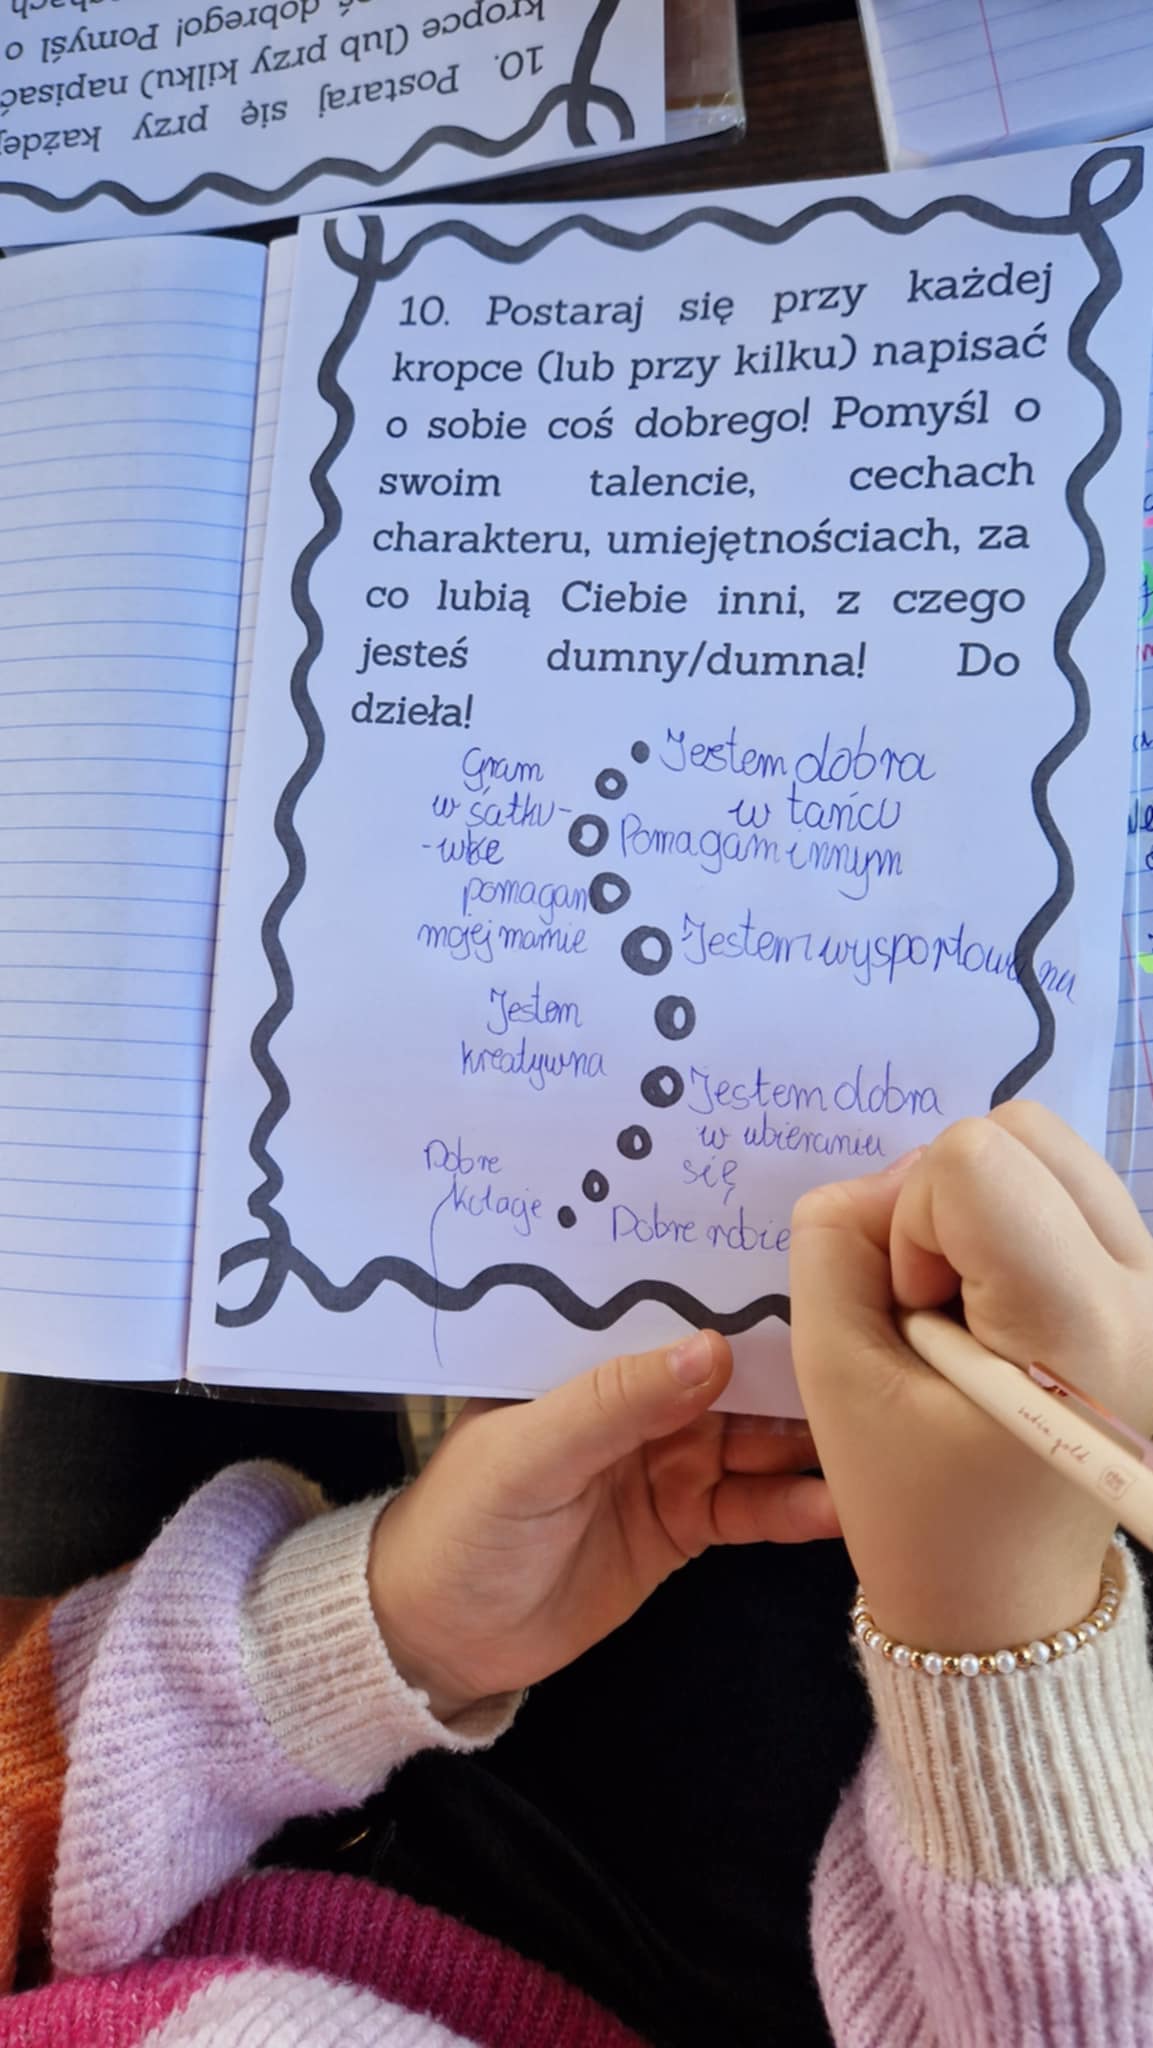 10. Postaraj się przy każdej
kropce (lub przy kilku) napisać
dobrego! Pomyśl o
10. Postaraj się przy każdej
kropce (lub przy kilku) napisać
o sobie coś dobrego! Pomyśl o
swoim talencie, cechach
charakteru, umiejętnościach, za
co lubią Ciebie inni, z czego
jesteś dumny/dumna! Do
dzieła!
Jestem dobra
w tańcu
Gram
w śatku-
-wke
Pomagam innym
pomagam
mojej mamie
Jestem wysportowana
Jestem
kreatywna
Jestem dobra
w ubieraniu
się
Dobre
kolacje
Dobre robie